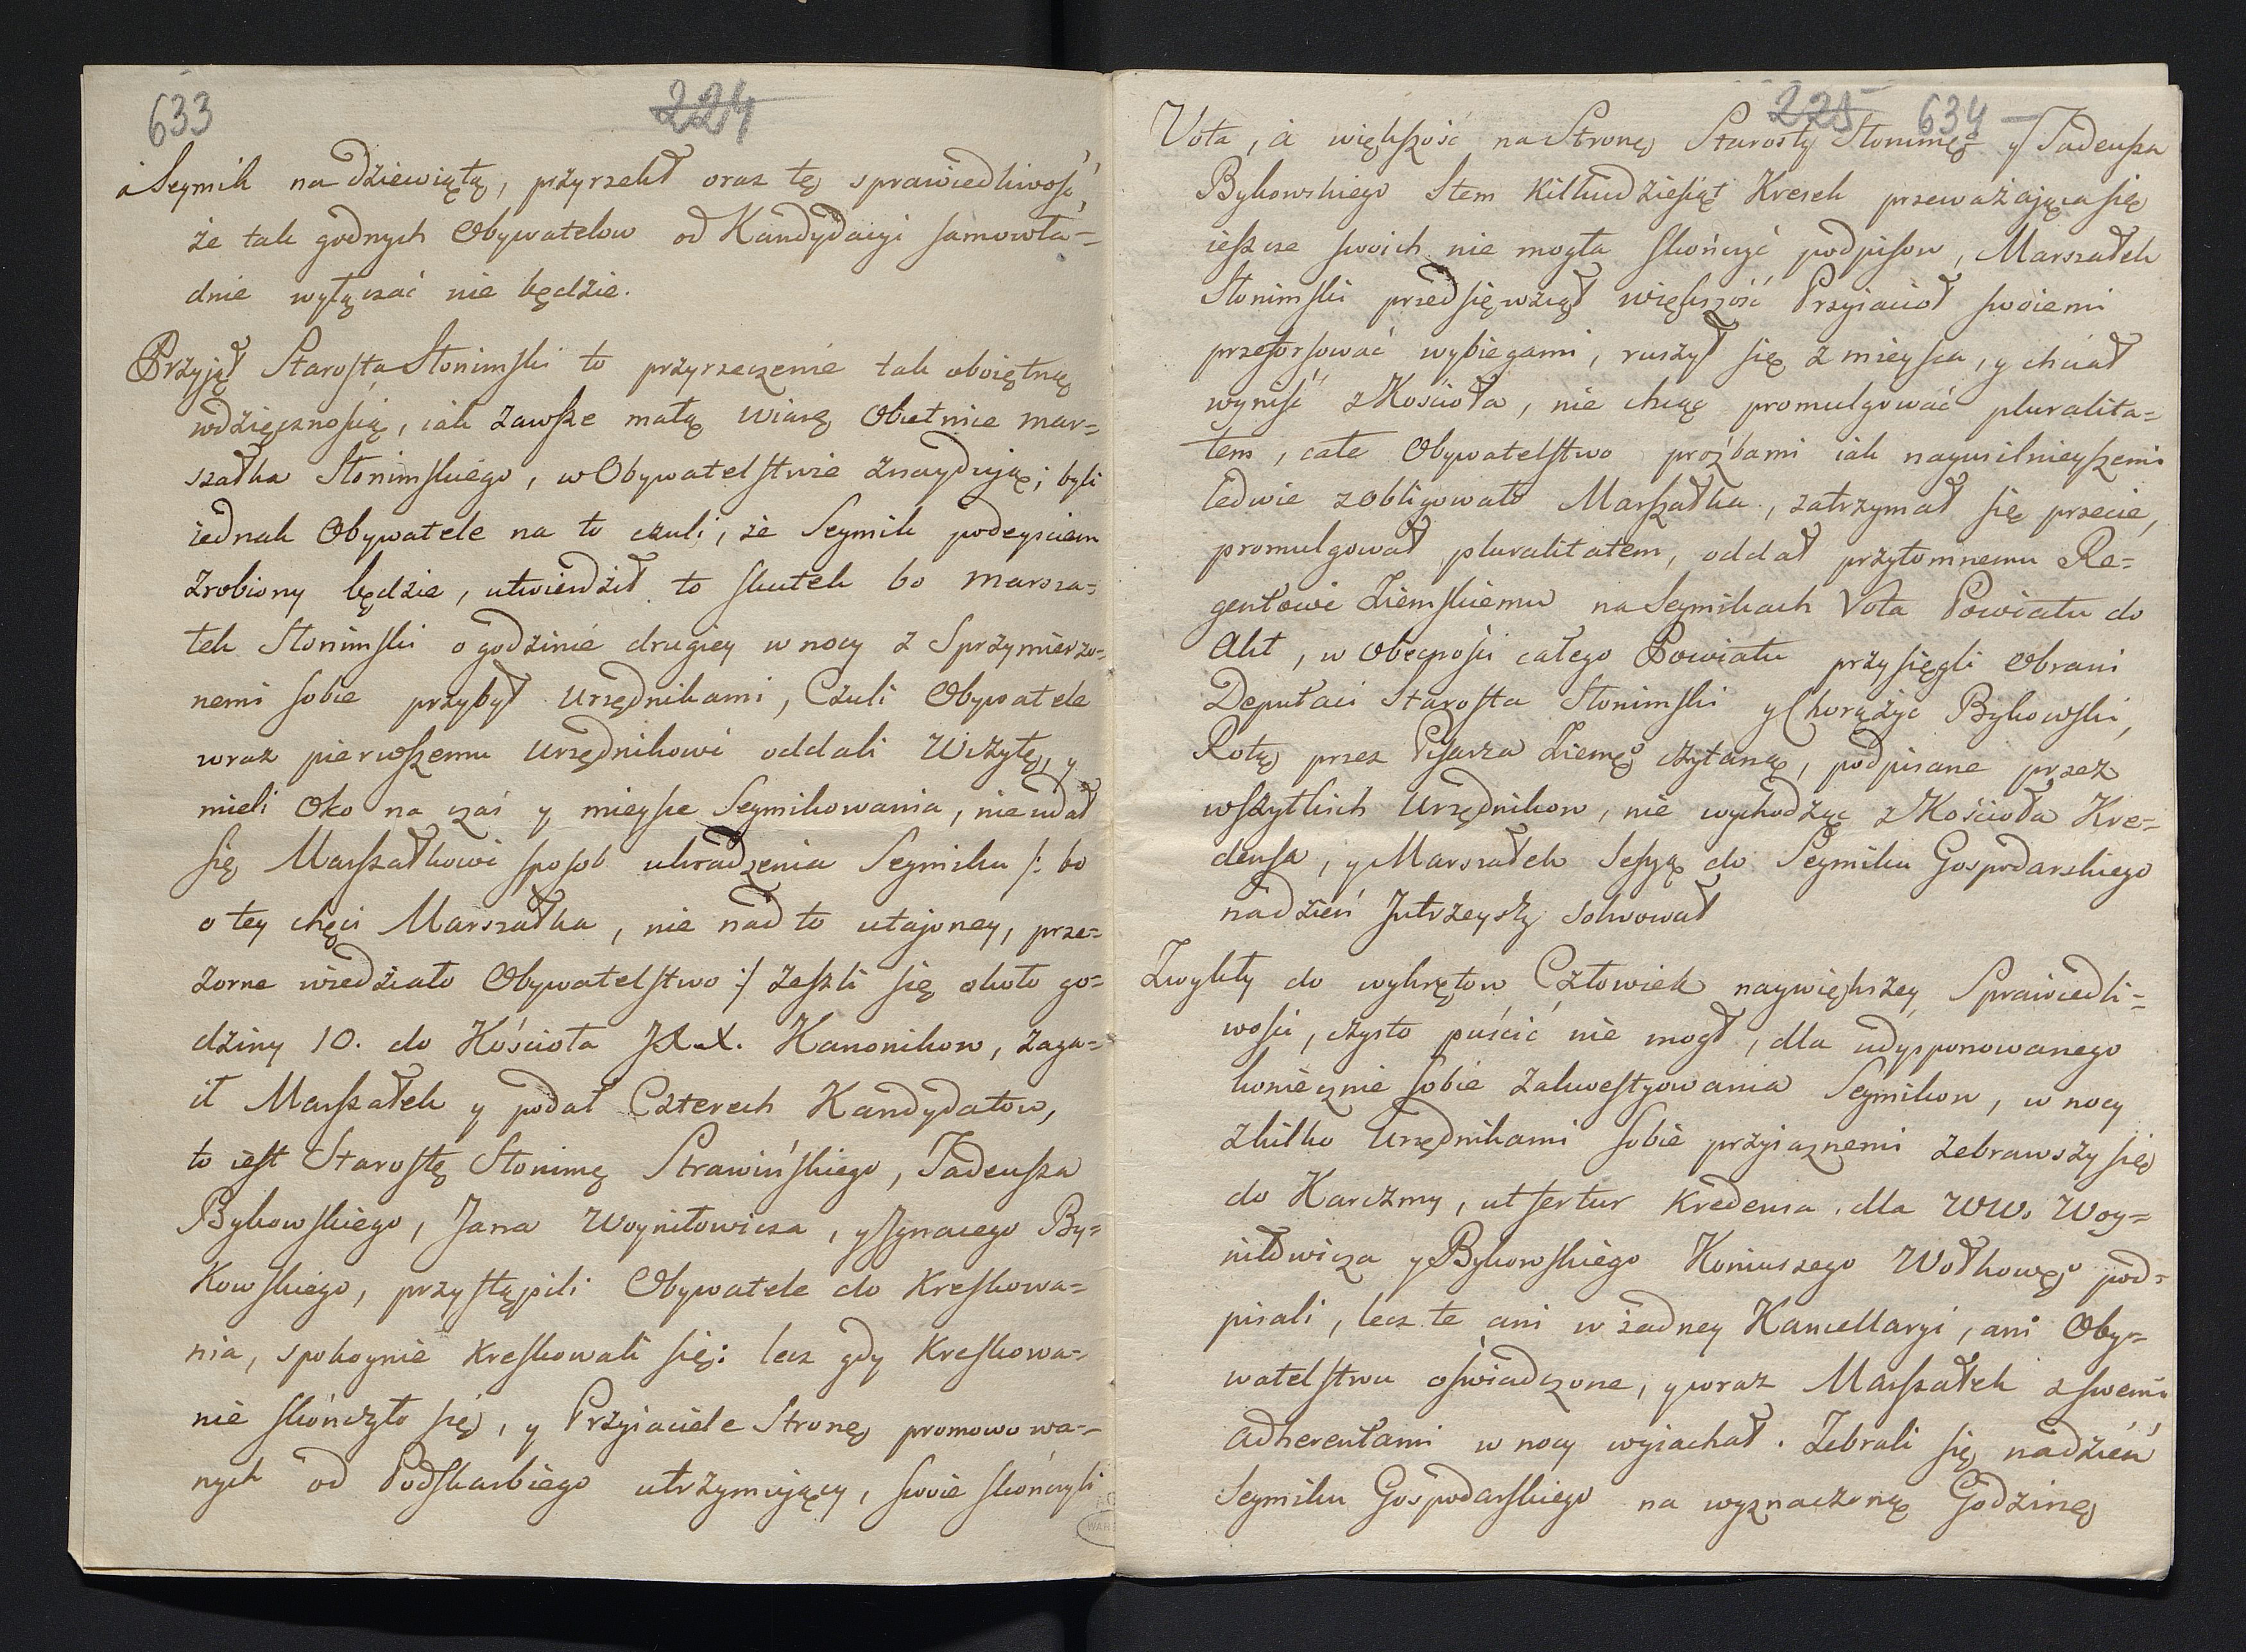 633 224
a Seymik na dziewiątą, przyrzekł oraz tę sprawiedliwość,
że tak godnych Obywatelow od Kandydacyi samowła=
dnie wyłączać nie będzie.
Przyjął Starosta Słonimski to przyrzeczenie tak oboiętną
wdzięcznością, iak zawsze małą wiarę Obietnice mar=
szałka Słonimskiego, w Obywatelstwie znayduią; byli
iednak Obywatele na to czuli, że Seymik podeyściem
zrobiony będzie, utwierdził to skutek bo marsza=
łek Słonimski o godzinie drugiey w nocy z Sprzymierzo=
nemi sobie przybył Urzędnikami, Czuli Obywatele
wraz pierwszemu Urzędnikowi oddali Wizytę, y
mieli Oko na czas y mieysce Seymikowania, nie udał
się Marszałkowi sposob ukradzenia Seymiku /: bo
o tey chęci Marszałka, nie nad to utajoney, prze=
zorne wiedziało Obywatelstwo :/ zeszli się około go=
dziny 10. do Kościoła JXX. Kanonikow, zaga=
ił Marszałek y podał Czterech Kandydatow,
to iest Starostę Słonimᶐ Strawińskiego, Tadeusza
Bykowskiego, Jana Woyniłowicza, y Jgnacego By=
kowskiego, przystąpili Obywatele do Kreskowa=
nia, spokoynie kreskowali się: lecz gdy Kreskowa=
nie skończyło się, y Przyiaciele Stronę promowowa=
nych od Podskarbiego utrzymuiący, swoie skończyli
225 634
Vota, a większość na Stronę Starosty Słonimgº y Tadeusza
Bykowskiego Stem kilkudziesiąt Kresek przeważaiąca się
ieszcze swoich nie mogła skończyć podpisow, Marszałek
Słonimski przedsięwziął większość Przyiacioł swoiemi
przeforsować wybiegami, ruszył się z mieysca, y chciał
wyniść z Kościoła, nie chcąc promulgować pluralita=
tem, całe Obywatelstwo proźbami iak nayusilnieyszemi
ledwie zobligowało Marszałka, zatrzymał się przecie,
promulgował pluralitatem, oddał przytomnemu Re=
gentowi Ziemskiemu na Seymikach Vota Powiatu do
Akt, w obecności całego Powiatu przysięgli Obrani
Deputaci Starosta Słonimski y Chorążyc Bykowski,
Rotę przez Pisarza Ziemgº czytaną, podpisane przez
wszytkich Urzędnikow, nie wychodząc z Kościoła Kre=
densa, y Marszałek Sessyą do Seymiku Gospodarskiego
na dzień Jutrzeyszy solwował
Zwykły do wykrętow Człowiek naywiększey Sprawiedli=
wości, czysto puścić nie mogł, dla udysponowanego
koniecznie sobie zakwestyowania Seymikow, w nocy
z kilko Urzędnikami sobie przyiaznemi zebrawszy się
do Karczmy, ut fertur Kredensa dla WW. Woy=
niłłowicza y Bykowskiego Koniuszego Wołkowgº pod=
pisali, lecz te ani w żadney Kancellaryi, ani Oby=
watelstwu oświadczone, y wraz Marszałek z swemi
adherentami w nocy wyiachał. Zebrali się na dzień
Seymiku Gospodarskiego na wyznaczoną Godzinę